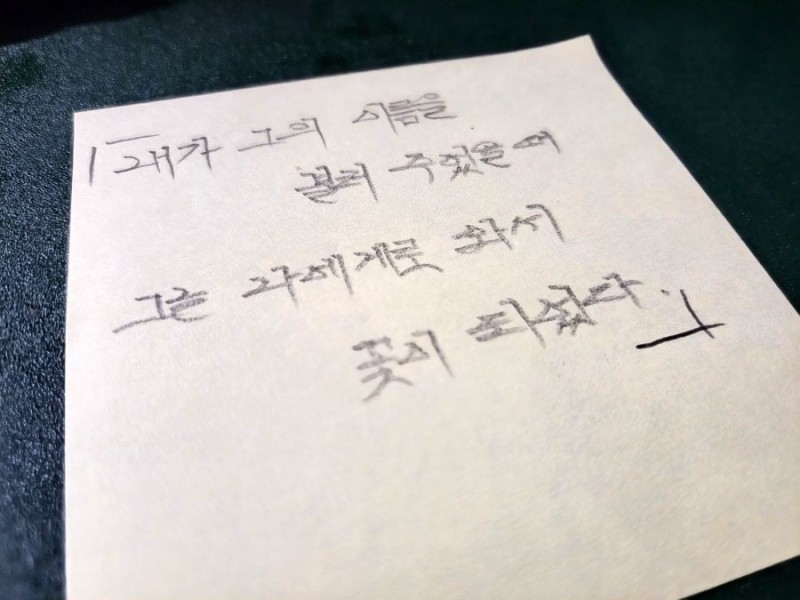 「내가 그의 이름을
불러 주었을 때
그는 나에게로 와서
꽃이 되었다.」